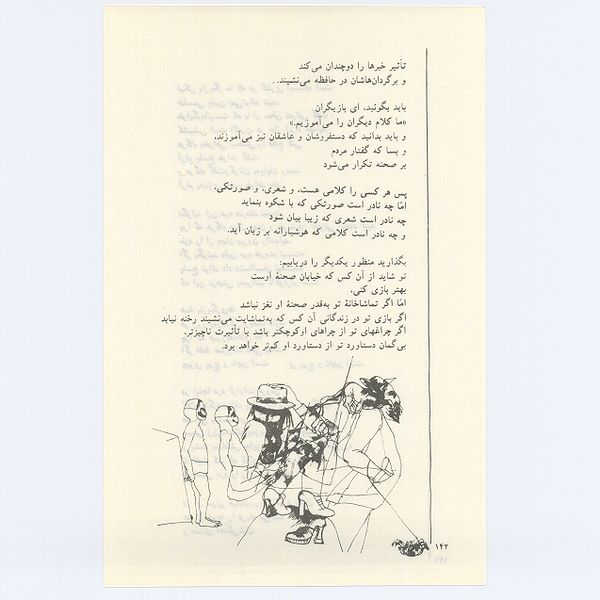 تأثیر خبرها را دوچندان می‌کند
و برگردان‌هاشان در حافظه می‌نشیند..
باید بگوئید، ای بازیگران
«ما کلام دیگران را می‌آموزیم.»
و باید بدانید که دستفروشان و عاشقان نیز می‌آموزند،
و بسا که گفتار مردم
بر صحنه تکرار می‌شود
پس هر کسی را کلامی هست، و شعری، و صورتکی،
امّا چه نادر است صورتکی که با شکوه بنماید
چه نادر است شعری که زیبا بیان شود
و چه نادر است کلامی که هوشیارانه بر زبان آید.
بگذارید منظور یکدیگر را دریابیم:
تو شاید از آن کس که خیابان صحنهٔ اوست
بهتر بازی کنی.
امّا اگر تماشاخانهٔ تو به‌قدر صحنهٔ او نغز نباشد
اگر بازی تو در زندگانی آن کس که به‌تماشایت می‌نشیند رخنه نیابد
اگر چراغهای تو از چراهای اوکوچکتر باشد یا تأثیرت ناچیزتر،
بی‌گمان دستاورد تو از دستاورد او کم‌تر خواهد بود.
۱۴۲